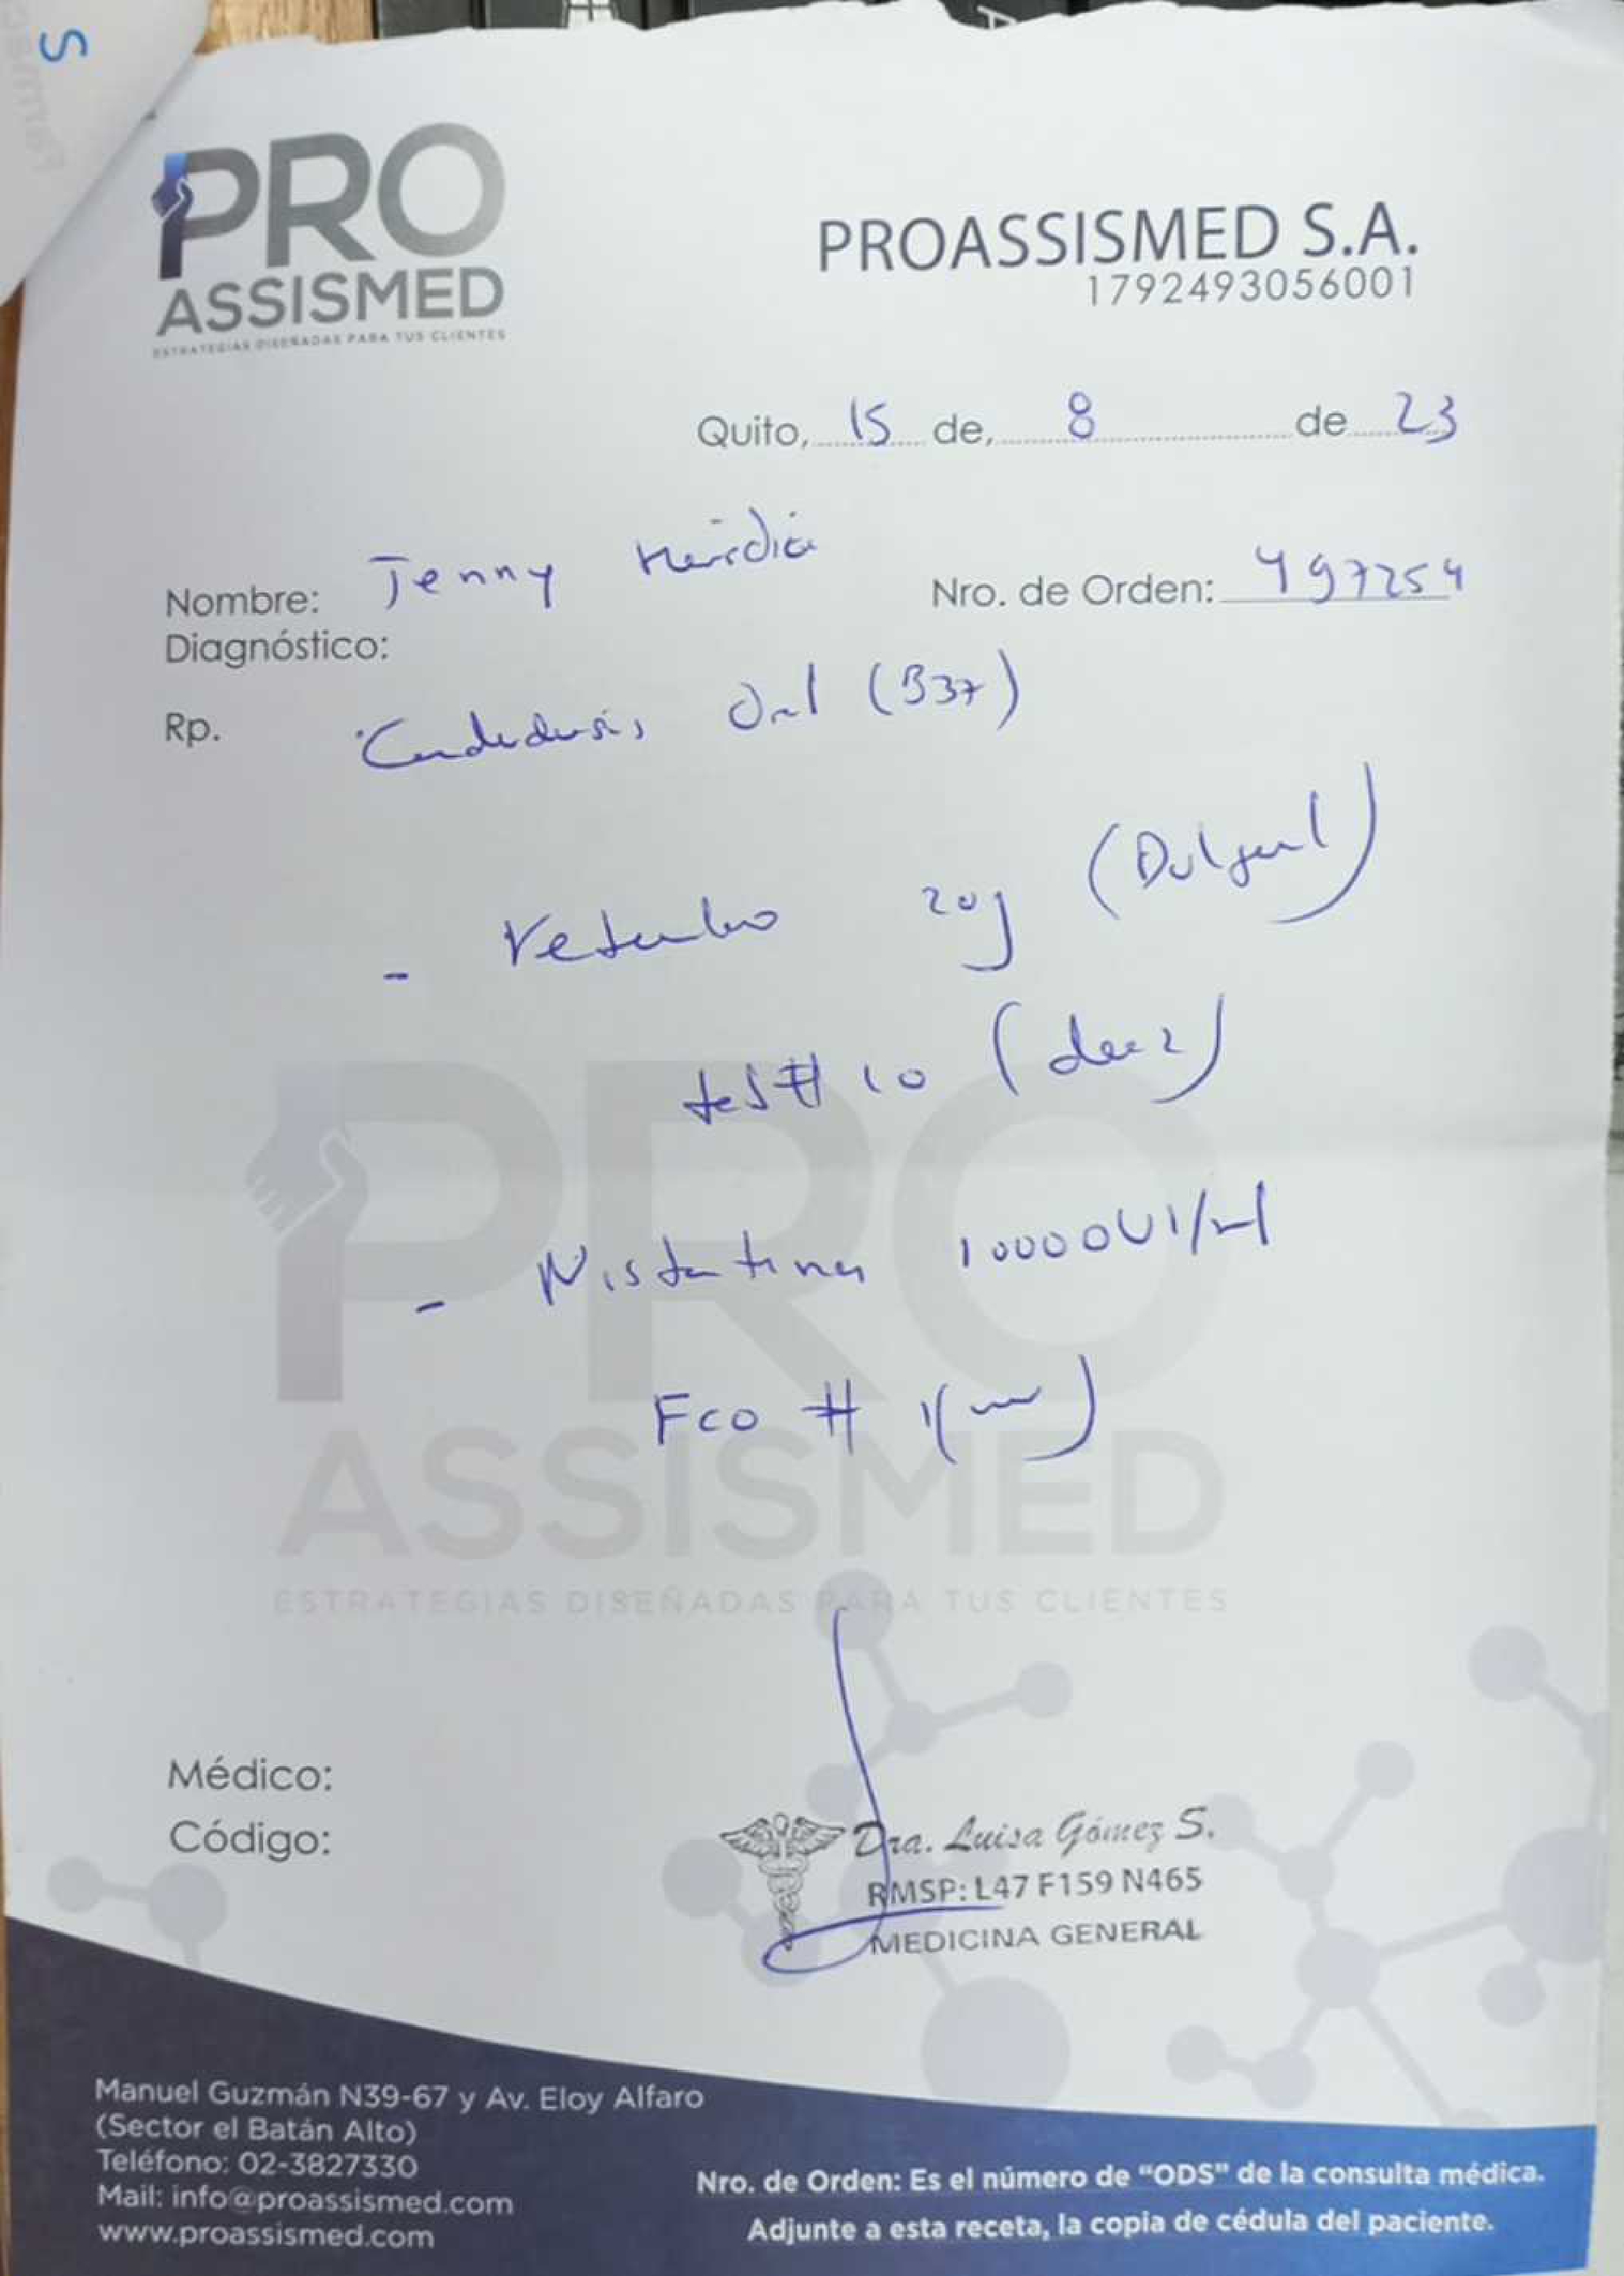 S
PRO
ASSISMED
ESTRATEGIAS DISEÑADAS PARA TUS CLIENTES
PROASSISMED S.A.
1792493056001
Quito, 15 de, 8 de 23
Nombre: Jenny
Nro. de Orden: 497254
Diagnóstico:
Rp. Candidiasis Oral (B37)
- 20g
# 10 (diez)
- Nistatina 100000UI/ml
Fco # 1(uno)
PRO
ASSISMED
ESTRATEGIAS DISEÑADAS PARA TUS CLIENTES
Médico:
Código:
Dra. Luisa Gómez S.
RMSP: L47 F159 N465
MEDICINA GENERAL
Manuel Guzmán N39-67 y Av. Eloy Alfaro
(Sector el Batán Alto)
Teléfono: 02-3827330
Mail: info@proassismed.com
www.proassismed.com
Nro. de Orden: Es el número de "ODS" de la consulta médica.
Adjunte a esta receta, la copia de cédula del paciente.